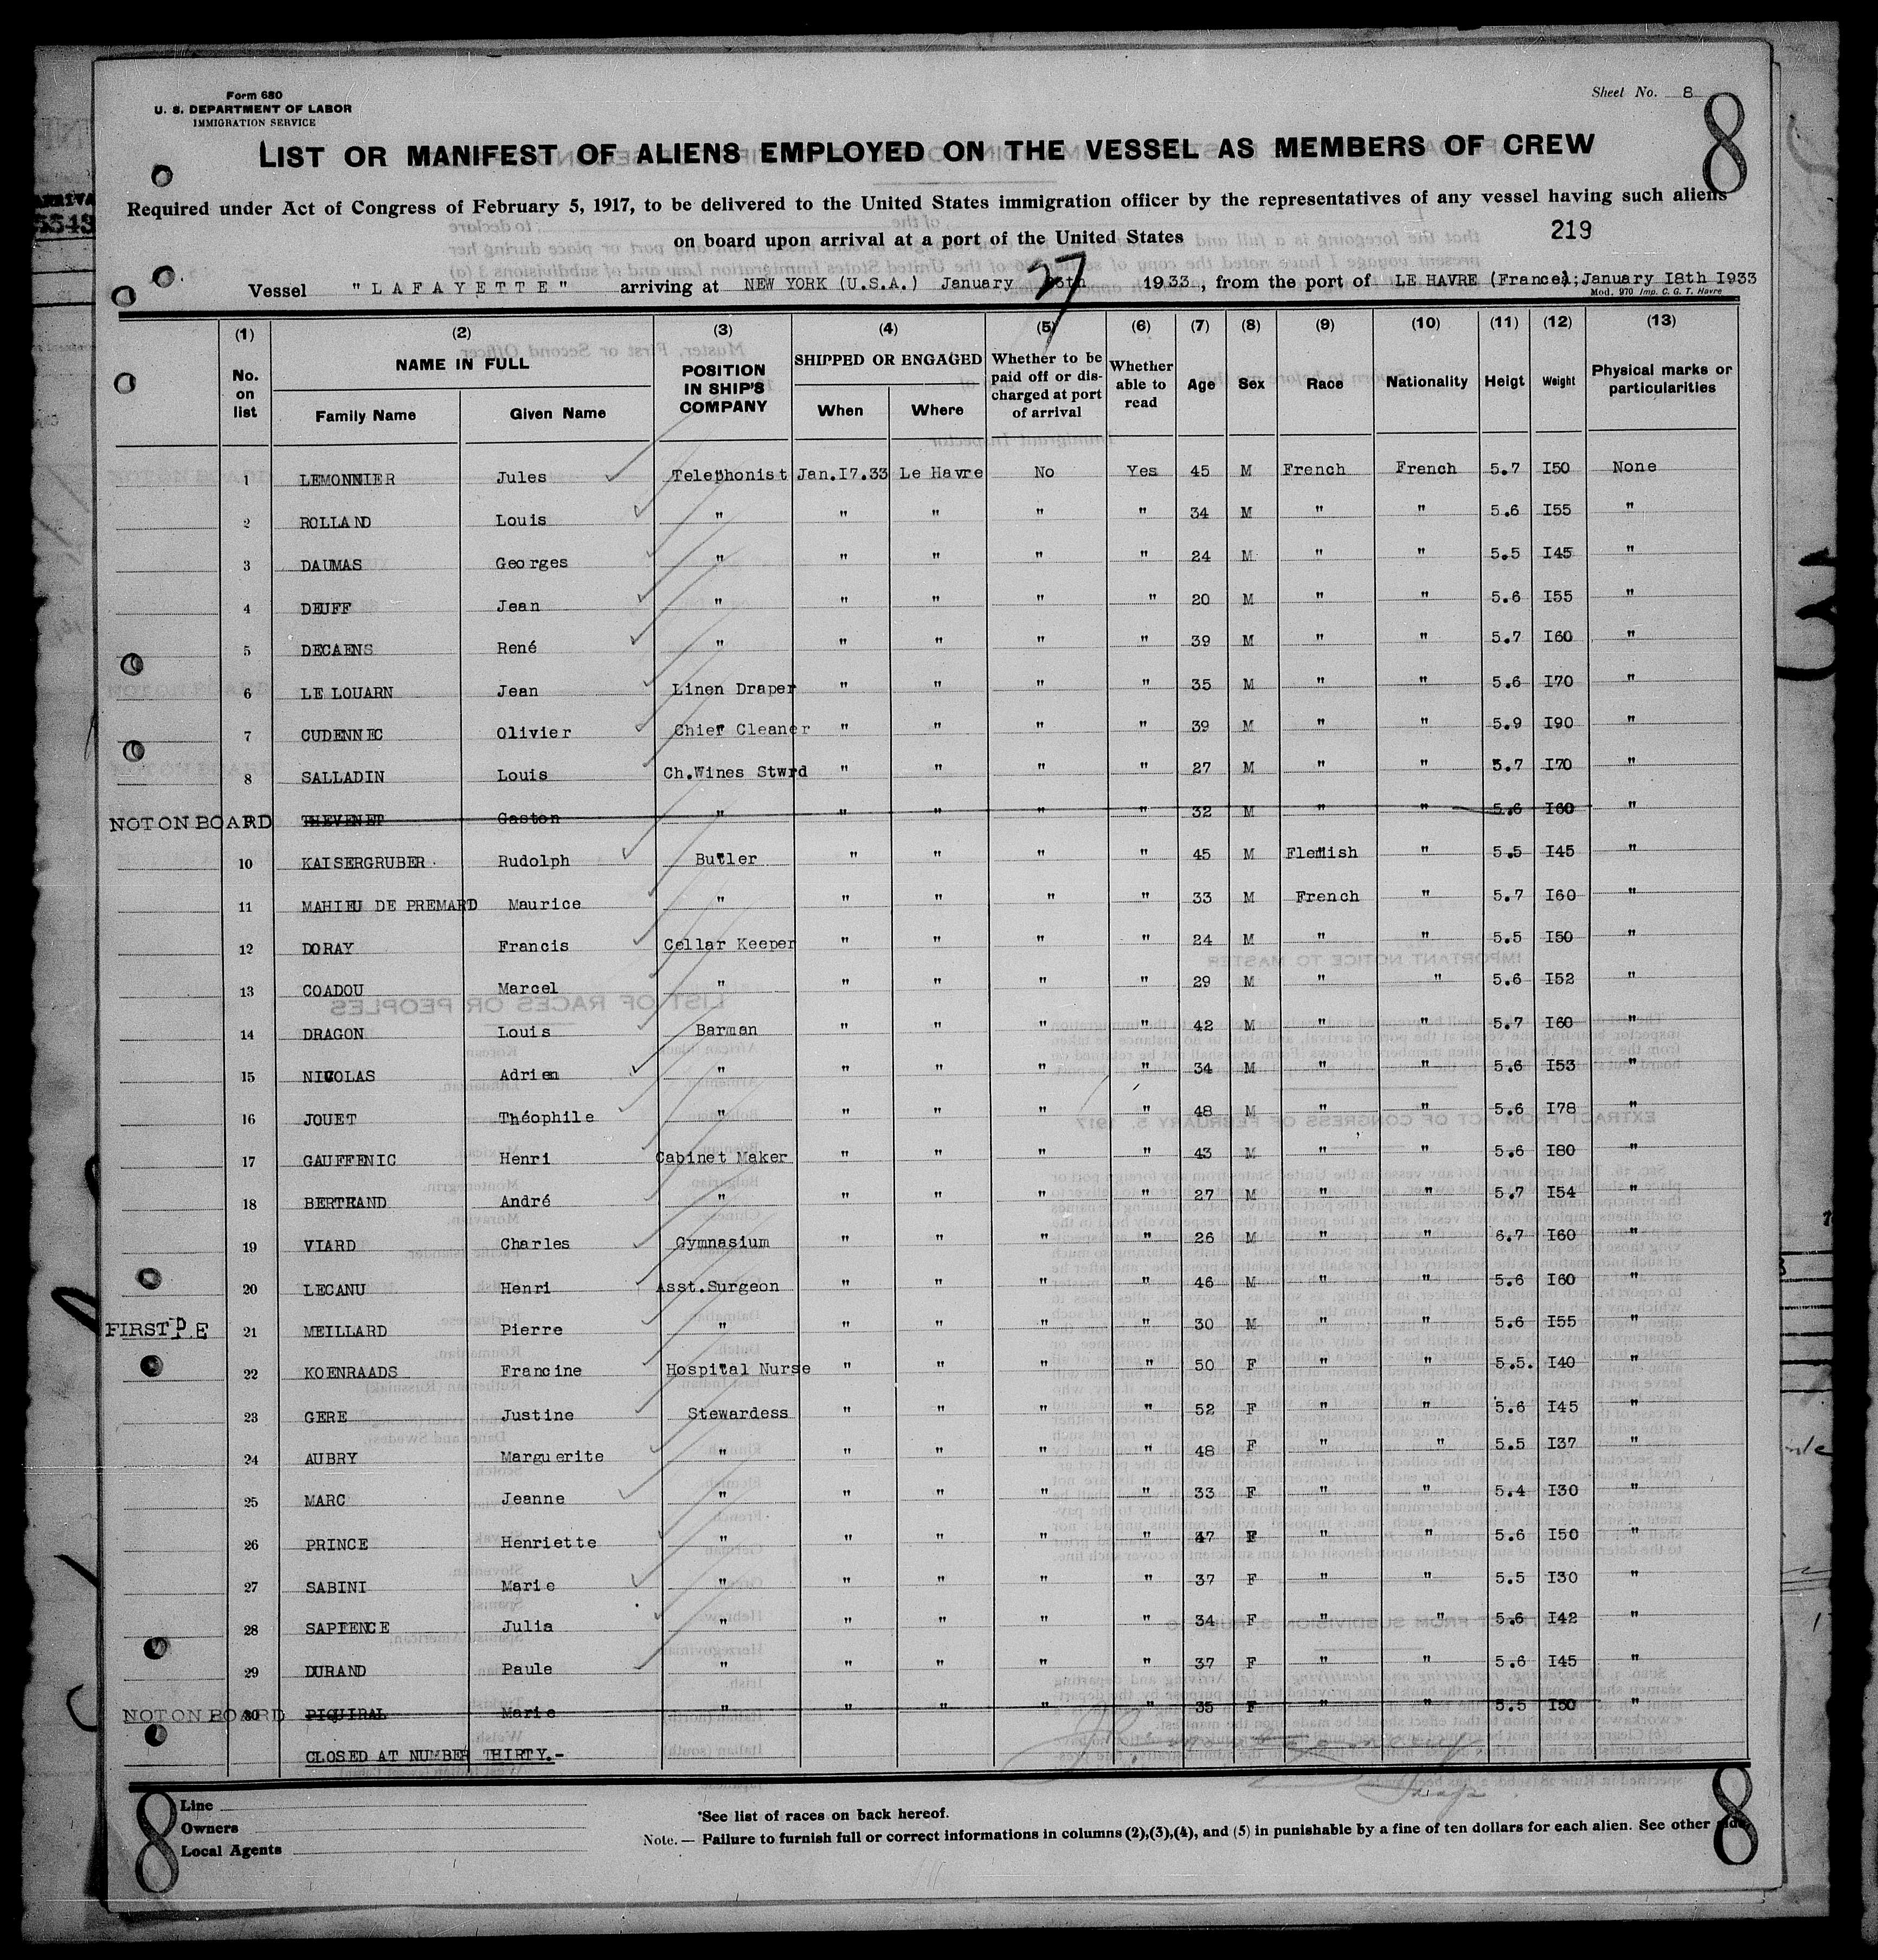 Form 680
U. S. DEPARTMENT OF LABOR
IMMIGRATION SERVICE
Sheet No. 8
8
LIST OR MANIFEST OF ALIENS EMPLOYED ON THE VESSEL AS MEMBERS OF CREW
Required under Act of Congress of February 5, 1917, to be delivered to the United States immigration officer by the representatives of any vessel having such aliens
on board upon arrival at a port of the United States
219
Vessel "LAFAYETTE" arriving at NEW YORK (U.S.A.) January 27 1933, from the port of LE HAVRE (France); January I8th I933
Mod. 970 Imp. C. G. T. Havre
(1) (2) (3) (4) (5) (6) (7) (8) (9) (10) (11) (12) (13)
No. on list NAME IN FULL Family Name Given Name POSITION IN SHIP'S COMPANY SHIPPED OR ENGAGED When Where Whether to be paid off or discharged at port of arrival Whether able to read Age Sex Race Nationality Heigt Weight Physical marks or particularities
1 LEMONNIER Jules Telephonist Jan.I7.33 Le Havre No Yes 45 M French French 5.7 I50 None
2 ROLLAND Louis " " " " " 34 M " " 5.6 I55 "
3 DAUMAS Georges " " " " " 24 M " " 5.5 I45 "
4 DEUFF Jean " " " " " 20 M " " 5.6 I55 "
5 DECAENS René " " " " " 39 M " " 5.7 I60 "
6 LE LOUARN Jean Linen Draper " " " " 35 M " " 5.6 I70 "
7 CUDENNEC Olivier Chief Cleaner " " " " 39 M " " 5.9 I90 "
8 SALLADIN Louis Ch.Wines Stwrd " " " " 27 M " " 5.7 I70 "
NOT ON BOARD 9 THEVENET Gaston " " " " " 32 M " " 5.6 I60 "
10 KAISERGRUBER Rudolph Butler " " " " 45 M Flemish " 5.5 I45 "
11 MAHIEU DE PREMARD Maurice " " " " " 33 M French " 5.7 I60 "
12 DORAY Francis Cellar Keeper " " " " 24 M " " 5.5 I50 "
13 COADOU Marcel " " " " " 29 M " " 5.6 I52 "
14 DRAGON Louis Barman " " " " 42 M " " 5.7 I60 "
15 NICOLAS Adrien " " " " " 34 M " " 5.6 I53 "
16 JOUET Théophile " " " " " 48 M " " 5.6 I78 "
17 GAUFFENIC Henri Cabinet Maker " " " " 43 M " " 5.6 I80 "
18 BERTRAND André " " " " " 27 M " " 5.7 I54 "
19 VIARD Charles Gymnasium " " " " 26 M " " 6.7 I60 "
20 LECANU Henri Asst.Surgeon " " " " 46 M " " 5.6 I60 "
FIRST P E 21 MEILLARD Pierre " " " " " 30 M " " 5.6 I55 "
22 KOENRAADS Francine Hospital Nurse " " " " 50 F " " 5.5. I40 "
23 GERE Justine Stewardess " " " " 52 F " " 5.6 I45 "
24 AUBRY Marguerite " " " " " 48 F " " 5.5 I37 "
25 MARC Jeanne " " " " " 33 F " " 5.4 I30 "
26 PRINCE Henriette " " " " " 47 F " " 5.6 I50 "
27 SABINI Marie " " " " " 37 F " " 5.5 I30 "
28 SAPIENCE Julia " " " " " 34 F " " 5.6 I42 "
29 DURAND Paule " " " " " 37 F " " 5.6 I45 "
NOT ON BOARD 30 PIQUIRAL Marie " " " " " 35 F " " 5.5 I50 "
CLOSED AT NUMBER THIRTY.-
8
Line
Owners
Local Agents
*See list of races on back hereof.
Note. — Failure to furnish full or correct informations in columns (2),(3),(4), and (5) in punishable by a fine of ten dollars for each alien. See other side
8